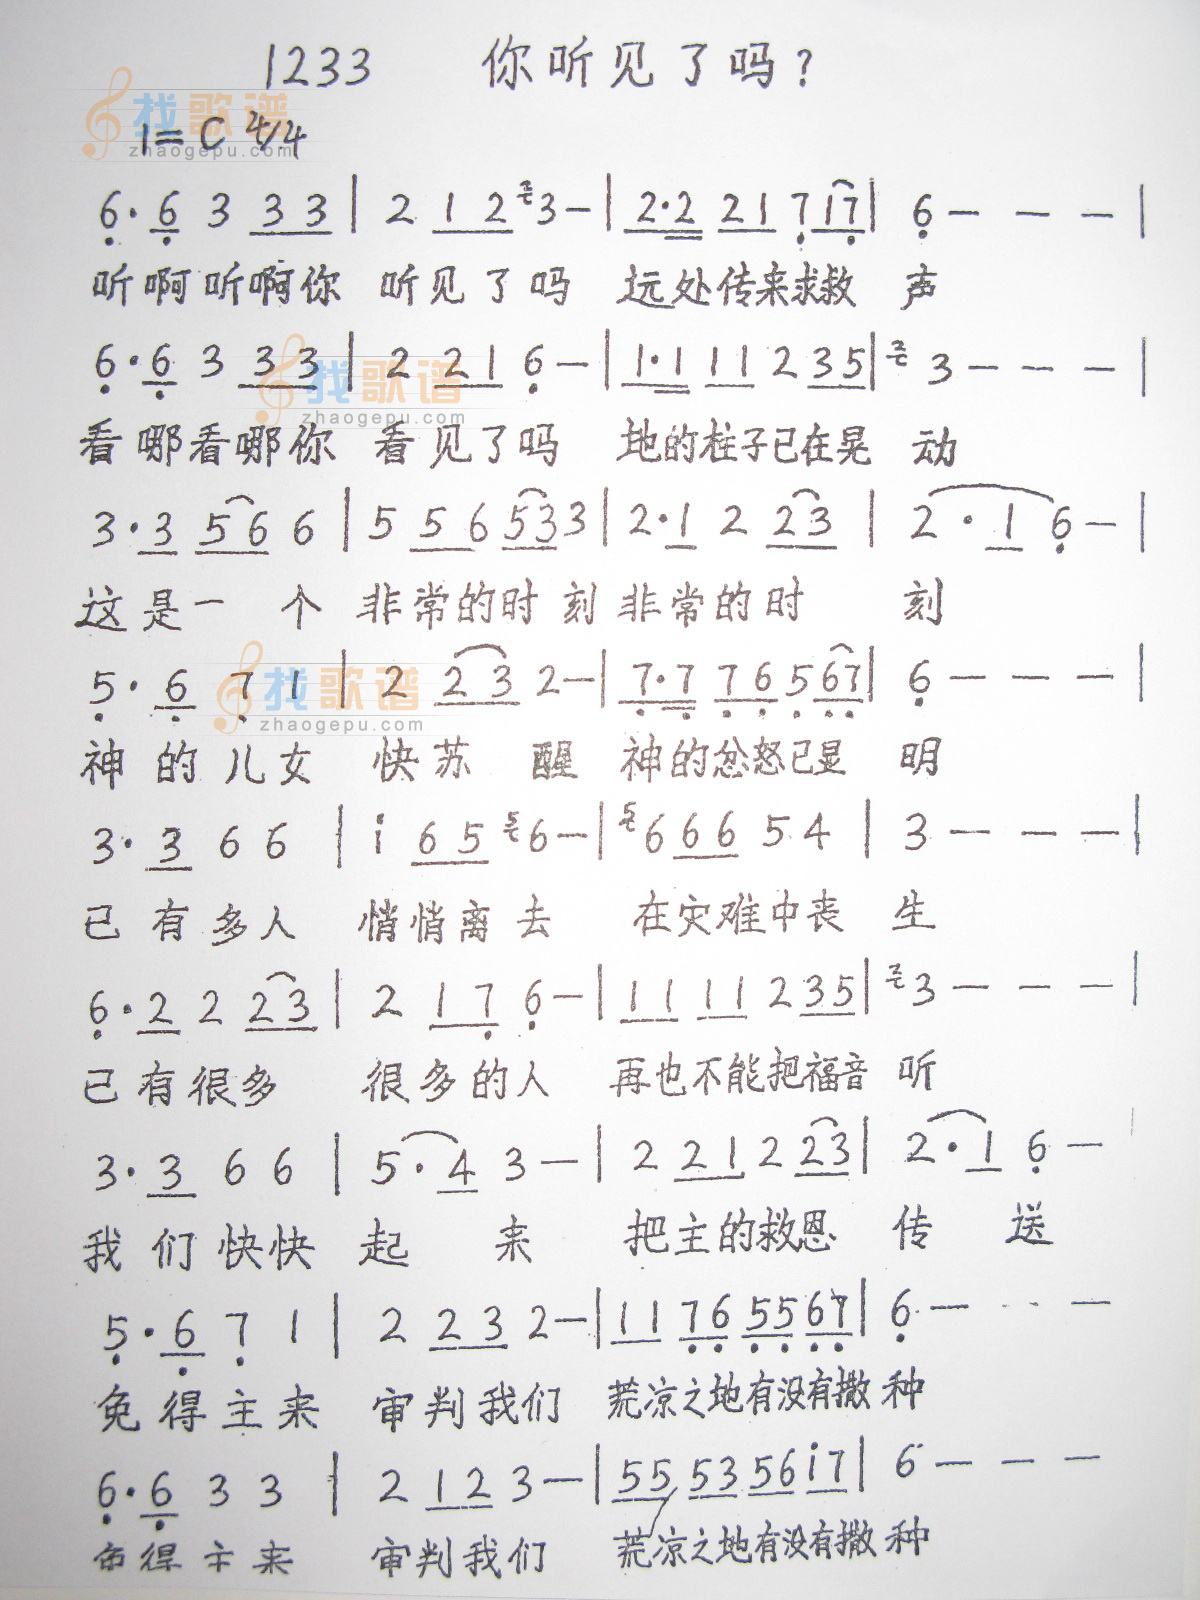 1233 你听见了吗?
找歌谱
1=C 4/4
zhaogepu.com
6·6 3 33 | 2 12 3— | 2·2 21 7 17 | 6— — — |
听啊听啊你 听见了吗 远处传来求救 声
6·6 3 33 | 2 21 6— | 1·1 11 2 35 | 3— — — |
找歌谱
zhaogepu.com
看哪看哪你 看见了吗 地的柱子已在晃 动
3·3 56 6 | 5 56 53 3 | 2·1 2 23 | 2·1 6— |
这是一个 非常的时刻 非常的时 刻
5·6 7 1 | 2 23 2— | 7·7 76 5 67 | 6— — — |
找歌谱
zhaogepu.com
神的儿女 快苏醒 神的忿怒已显 明
3·3 6 6 | i 65 6— | 6 66 5 4 | 3— — — |
已有多人 悄悄离去 在灾难中丧 生
6·2 2 23 | 2 17 6— | 11 11 2 35 | 3— — — |
已有很多 很多的人 再也不能把福音 听
3·3 6 6 | 5·4 3— | 2 21 2 23 | 2·1 6—
我们快快 起来 把主的救恩 传送
5·6 7 1 | 2 23 2— | 11 76 55 67 | 6— — —
免得主来 审判我们 荒凉之地有没有撒 种
6·6 3 3 | 2 12 3— | 55 53 56 i7 | 6— — —
免得主来 审判我们 荒凉之地有没有撒 种